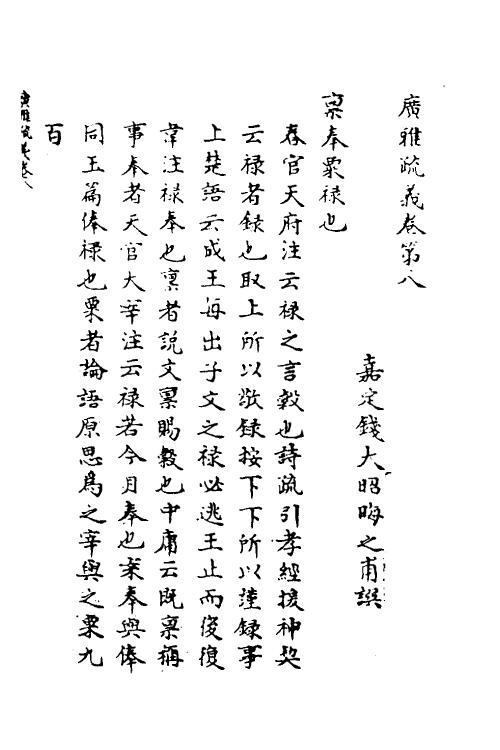 廣雅疏義卷第八
嘉定錢大昭晦之甫譔
稟奉粟禄也
春官天府注云禄之言穀也詩疏引孝經援神契
云禄者録也取上所以敬録接下下所以謹録事
上楚語云成王每出子文之禄必逃王止而後復
韋注禄奉也稟者説文稟賜穀也中庸云既稟稱
事奉者天官大宰注云禄若今月奉也案奉與俸
同玉篇俸禄也粟者論語原思爲之宰與之粟九
百
廣雅疏義卷八